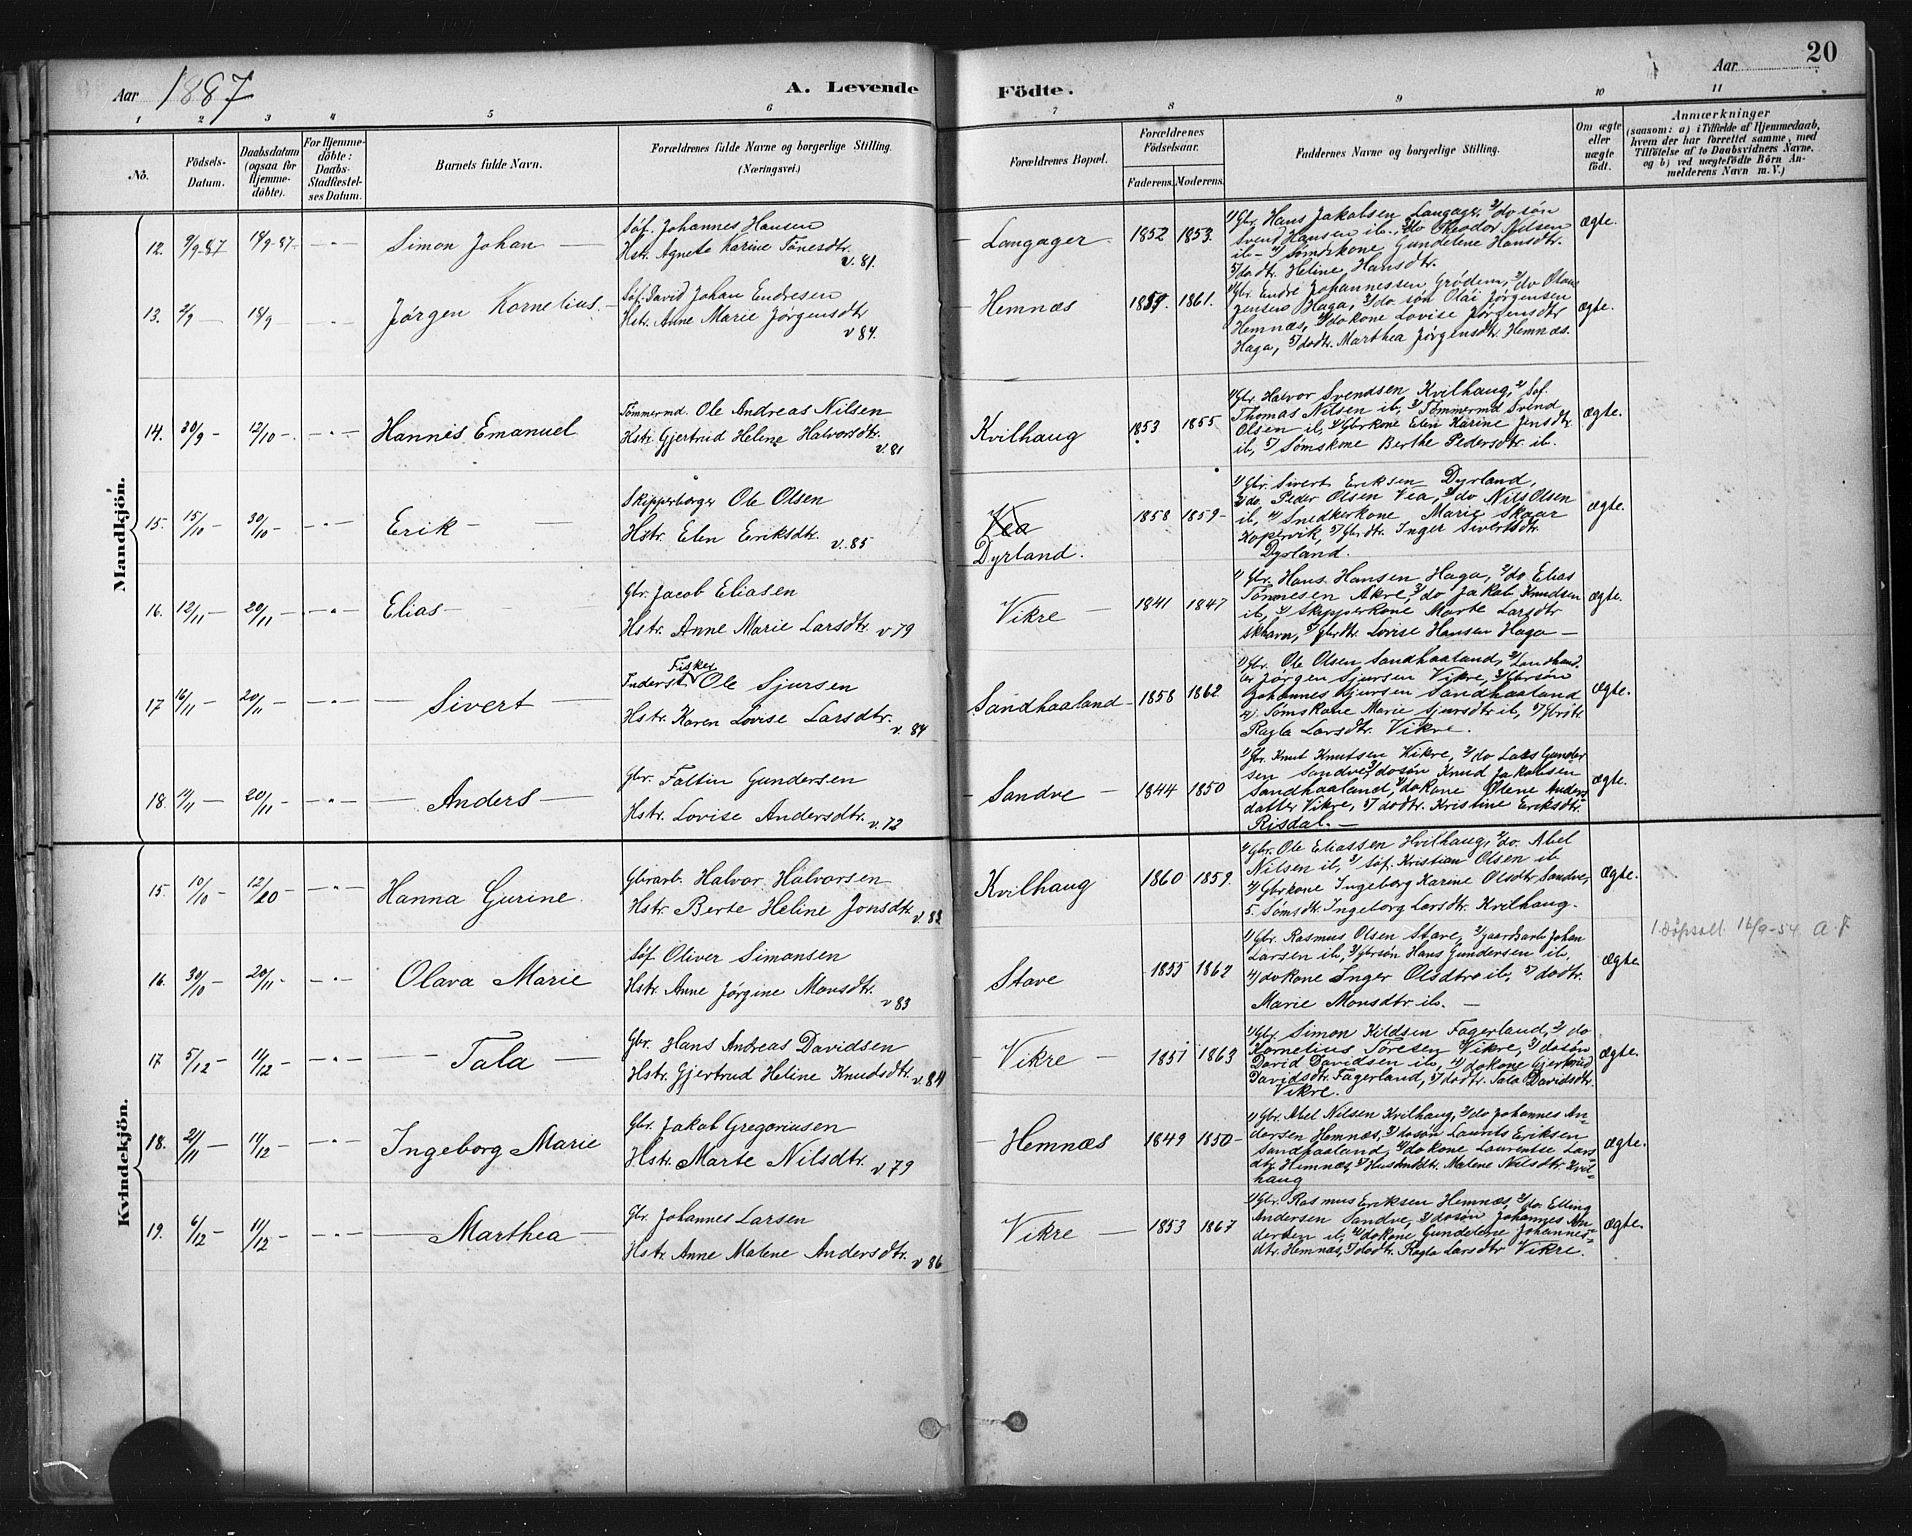 Aar 1887 A. Levende Födte. Aar 20
1 2 3 4 5 6 7 8 9 10 11
No.
Födsels-Datum.
Daabsdatum (ogsaa for Hjemme-döbte).
For Hjemme-döbte: Daabs-Stadfæstel-ses Datum.
Barnets fulde Navn.
Forældrenes fulde Navne og borgerlige Stilling. (Næringsvei.)
Forældrenes Bopæl.
Forældrenes Födselsaar.
Faderens. Moderens.
Faddernes Navne og borgerlige Stilling.
Om ægte eller uægte födt.
Anmærkninger
(saasom: a) i Tilfælde af Hjemmedaab,
hvem der har forrettet samme, med
Tilföielse af to Daabsvidners Navne,
og b) ved uægtefödte Börn An-
melderens Navn m. V.)
Mandkjön.
12. 9/9-87 18/9-87- -"- Simon Johan
Søf. Johannes Hansen
Hstr. Agnete Karine Tönesdtr.
v.81.
Langager 1852 1853.
1/ Gbr. Hans Jakobsen Langager, 2/ do søn
Svend Hansen ib., 3/ do Theodor Nilsen
ib- 4/ Sømdskone Gundelene Hansdtr.
5/ dodtr. Heline Hansdtr.
ægte.
13. 2/9 18/9 -"- Jørgen Kornelius.
Søf. David Johan Endresen
Hstr. Anne Marie Jørgensdtr
v 84.
Hemnæs 1859. 1861.
1/ Gbr. Endre Johannessen Grödem, 2/ do Olaus
Jensens Haga, 3/ do søn Olai Jørgensen
Hemnæs, 4/ do kone Lovise Jørgensdtr
Haga, 5/ dodtr. Marthea Jørgensdtr. Hemnæs.
ægte.
14. 30/9 - 12/10 -. -"- Hannes Emanuel
Tömmermd. Ole Andreas Nilsen
Hstr. Gjertrud Heline Halvorsdtr.
v.81
Kvilhaug 1853 1855
1/ Gbr. Halvor Svendsen Kvilhaug, 2/ Søf.
Thomas Nilsen ib, 3/ Tømmermd Svend
Olsen ib, 4/ Gbrkone Elen Karine Jensdtr
ib, 5/ Sømskone Berthe Pedersdtr ib.
ægte.
15. 15/10 - 30/10 -"- Erik -
Skipperborger Ole Olsen
Hstr. Elen Eriksdtr. v.85
Vea
Dyrland. 1858 1859-
1/ Gbr. Sivert Eriksen Dyrland,
2/ do. Peder Olsen Vea, 3/ do Nils Olsen
ib, 4/ Snedkerkone Marie Skaar
Kopervik, 5/ Gbrdtr. Inger Sivertsdtr.
Dyrland.
ægte.
16. 12/11 - 20/11 -"- Elias -
Gbr. Jacob Eliasen
Hstr. Anne Marie Larsdtr. v 79
Vikre 1841 1847
1/ Gbr. Hans Hansen Haga, 2/ do Elias
Tönnesen Akre, 3/ do Jakob Knudsen
ib, 4/ Skipperkone Marte Larsdtr
skhavn, 5/ Gbrdtr. Lovise Hansen Haga -
ægte.
17 16/11 - 20/11 -"- Sivert -
Fisker
Inderst Ole Sjursen
Hstr. Karen Lovise Larsdtr.
v. 84
Sandhaaland - 1858 1862
1/ Gbr. Ole Olsen Sandhaaland, 2/ Landhand-
ler Jørgen Sjursen Vikre, 3/ Gbrsøn
Johannes Sjursen Sandhaaland
4/ Sømskone Marie Sjursdtr ib,
Ragla Larsdtr. Vikre.
ægte.
18. 20/11 -"- Anders -
Gbr. Faltin Gundersen
Hstr. Lovise Andersdtr. v.72
Sandve - 1844 1850
1/ Gbr. Knut Knutsen Vikre, 2/ do Lars Gunder
sen Sandve, 3/ dosøn Knud Jakobsen
Sandhaaland, 4/ dokone Olene Anders
datter Vikre, 5/ dodtr. Kristine Eriksdtr.
Risdal. -
ægte.
Kvindekjön.
15. 10/10 12/20 -"- Hanna Gurine.
Gbrarb. Halvor Halvorsen
Hstr. Berte Heline Jonsdtr. v. 83
Kvilhaug 1860 1859.
1/ Gbr. Ole Eliassen Hvilhaug, 2/ do. Abel
Nilsen ib, 3/ Søf. Kristian Olsen ib
4/ Gbrkone Ingeborg Karine Olsdtr Sandve,
5. Sømsdtr. Ingeborg Larsdtr. Kvilhaug.
ægte.
16. 30/10 - 20/11 -"- Olava Marie
Søf. Oliver Simonsen
Hstr. Anne Jørgine Monsdtr.
v 83
Stave 1855 1862
1/ Gbr. Rasmus Olsen Stave, 2/ gaardsarb Johan
Larsen ib, 3/ Gbrsøn Hans Gundersen ib,
4/ dokone Inger Olsdtr ib, 5/ dodtr.
Marie Monsdtr ib. -
ægte
1. döpsatt. 16/9-54 a.F
17 5/12 - 11/12 -"- Tala -
Gbr. Hans Andreas Davidsen
Hstr. Gjertrud Heline Knudsdtr. v. 84
Vikre - 1851 1863
1/ Gbr. Simon Kildsen Fagerland, 2/ do
Kornelius Töresen Vikre, 3/ dosøn
David Davidsen ib, 4/ dokone Gjertrud
Davidsdtr. Fagerland, 5/ dodtr. Tala Davidsdtr.
Vikre.
ægte.
18. 21/11 - 11/12 -"- Ingeborg Marie
Gbr. Jakob Gregoriusen
Hstr. Marte Nilsdtr. v 79
Hemnæs 1849 1850-
1/ Gbr. Abel Nilsen Kvilhaug, 2/ do Johannes An-
dersen Hemnæs, 3/ dosøn Laurits Eriksen
Sandhaaland, 4/ dokone Laurentse Lars
dtr. Hemnæs, 5/ Husmdtr. Malene Nilsdtr Kvil-
haug
ægte.
19. 6/12 - 11/12 -"- Marthea -
Gbr. Johannes Larsen
Hstr. Anne Malene Andersdtr.
v 86
Vikre - 1853 1867
1/ Gbr. Rasmus Eriksen Hemnæs, 2/ do. Elling
Andersen Sandve, 3/ dosøn Johannes An-
dersen ib, 4/ dokone Gundelene Johannes-
dtr. Hemnæs, 5/ dodtr. Ragla Larsdtr Vikre.
ægte.